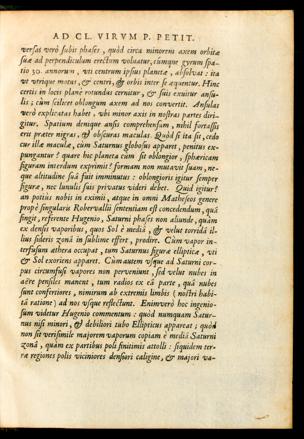 AD CL. VIRVM P. PETIT.
versas verò subit phases, quòd circa minorem axem orbitæ
suæ ad perpendiculum erectum voluatur, cùmque gyrum spa-
tio 30. annorum, vti centrum ipsius planetæ, absoluat: ita
vt vtrique motus, & centri, & orbis inter se æquentur. Hinc
certis in locis planè rotundus cernitur, & suis exuitur ansu-
lis; cùm scilicet oblongum axem ad nos convertit. Ansulas
verò explicatas habet, vbi minor axis in nostras partes diri-
gitur. Spatium denique ansis comprehensum, nihil fortassis
erit præter nigras, & obscuras maculas. Quòd si ita sit, cedo
cur illæ maculæ, cùm Saturnus globosus apparet, penitus ex-
pungantur? quare hic planeta cùm sit oblongior, sphæricam
figuram interdum exprimit? formam non mutavit suam, ne-
que altitudine suâ fuit imminutus: oblongioris igitur semper
figuræ, nec lunulis suis privatus videri debet. Quid igitur?
an potiùs nobis in eximii, atque in omni Matheseos genere
propè singularis Robervallii sententiam est concedendum, quâ
fingit, referente Hugenio, Saturni phases non aliunde, quàm
ex densis vaporibus, quos Sol è mediâ, & velut torridâ il-
lius sideris zonâ in sublime effert, prodire. Cùm vapor in-
terfusum æthera occupat, tum Saturnus figurâ ellipticâ, vti
& Sol exoriens apparet. Cùm autem vsque ad Saturni cor-
pus circumfusi vapores non perveniunt, sed velut nubes in
aëre pensiles manent, tum radios ex eâ parte, quâ nubes
sunt confertiores, nimirum ab extremis limbis (nostri habi-
tâ ratione) ad nos vsque reflectunt. Enimverò hoc ingenio-
sum videtur Hugenio commentum: quòd numquam Satur-
nus nisi minori, & debiliori tubo Ellipticus appareat; quòd
non sit verisimile majorem vaporum copiam è mediâ Saturni
zonâ, quàm ex partibus poli finitimis attolli: siquidem ter-
ræ regiones polis viciniores densiori caligine, & majori va-